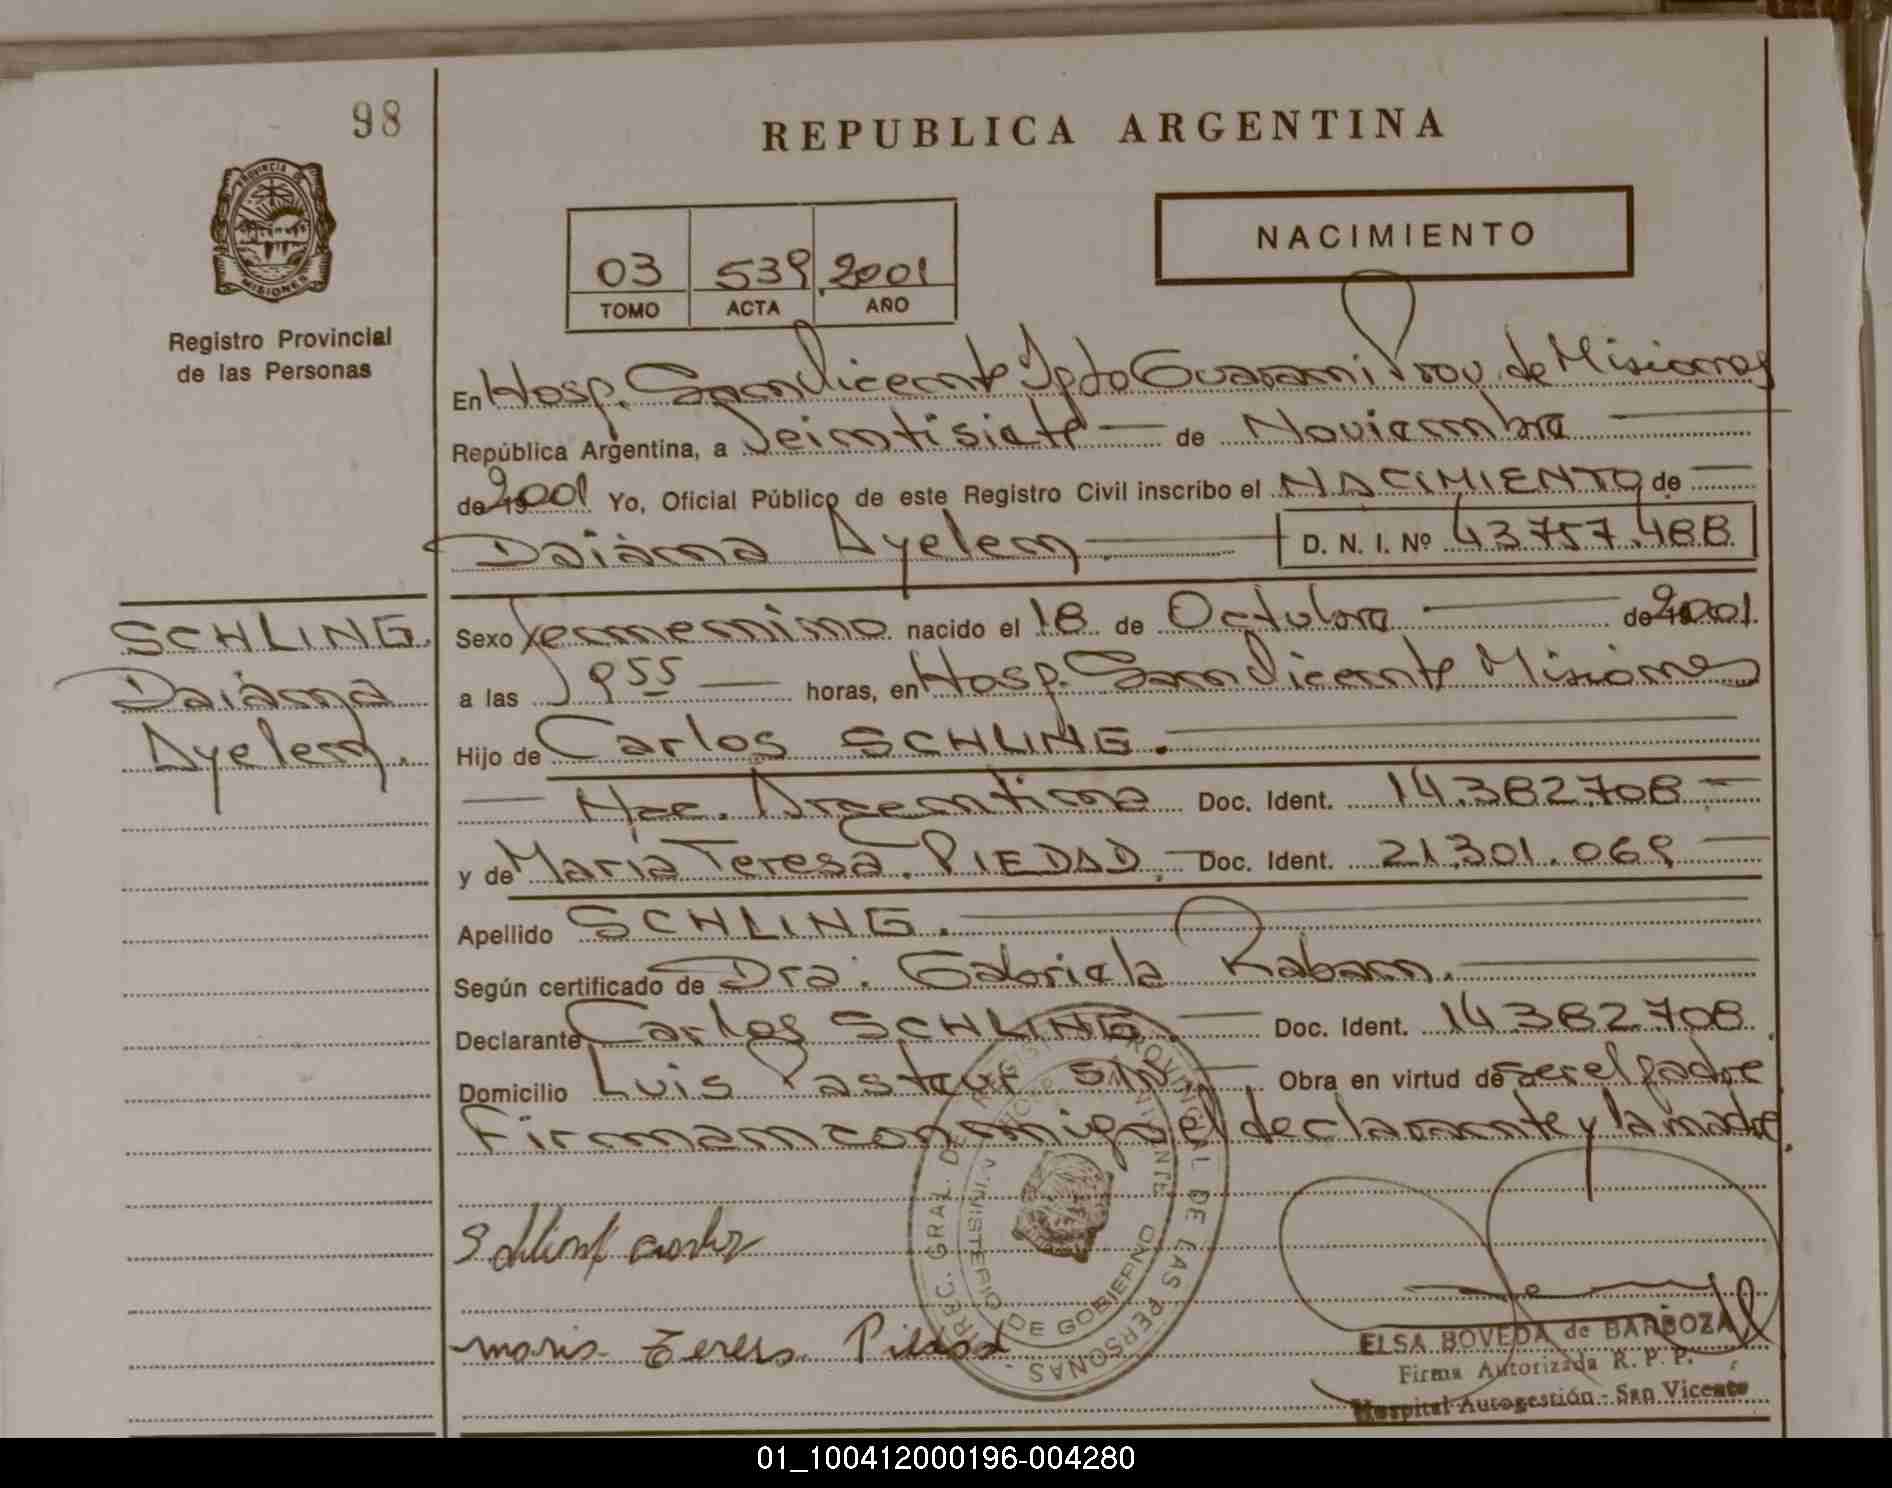 98
REPUBLICA ARGENTINA
PROVINCIA DE
MISIONES
Registro Provincial
de las Personas
NACIMIENTO
03 539 2001
TOMO ACTA AÑO
En Hosp. San Vicente Dpto Guarani Prov. de Misiones
República Argentina, a Veintisiete de Noviembre
de 2001 Yo, Oficial Público de este Registro Civil inscribo el NACIMIENTO de
Daiana Ayelen D. N. I. Nº 43.757.488
SCHLING.
Daiana
Ayelen.
Sexo Femenino nacido el 18 de Octubre de 2001.
a las 955 horas, en Hosp. San Vicente Misiones
Hijo de Carlos SCHLING.
Nac. Argentina Doc. Ident. 14.382.708
y de María Teresa PIEDAD Doc. Ident. 21.301.069
Apellido SCHLING.
Según certificado de Dra. Gabriela Raban.
Declarante Carlos SCHLING Doc. Ident. 14 382 708
Domicilio Luis Pasteur S/Nº. Obra en virtud de ser el padre
Firman conmigo el declarante y la madre.
Schling Carlos
Maria Teresa Piedad
DIREC. GRAL. DE REGISTRO PROVINCIAL DE LAS PERSONAS
MINISTERIO DE GOBIERNO
ELSA BOVEDA de BARBOZA
Firma Autorizada R. P. P.
Hospital Autogestión - San Vicente
01_100412000196-004280